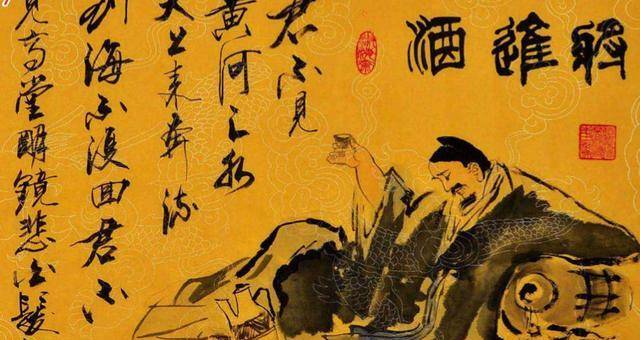 將進酒
君不見
黄河之水
天上来奔流
到海不復回君不
見高堂明鏡悲白髮